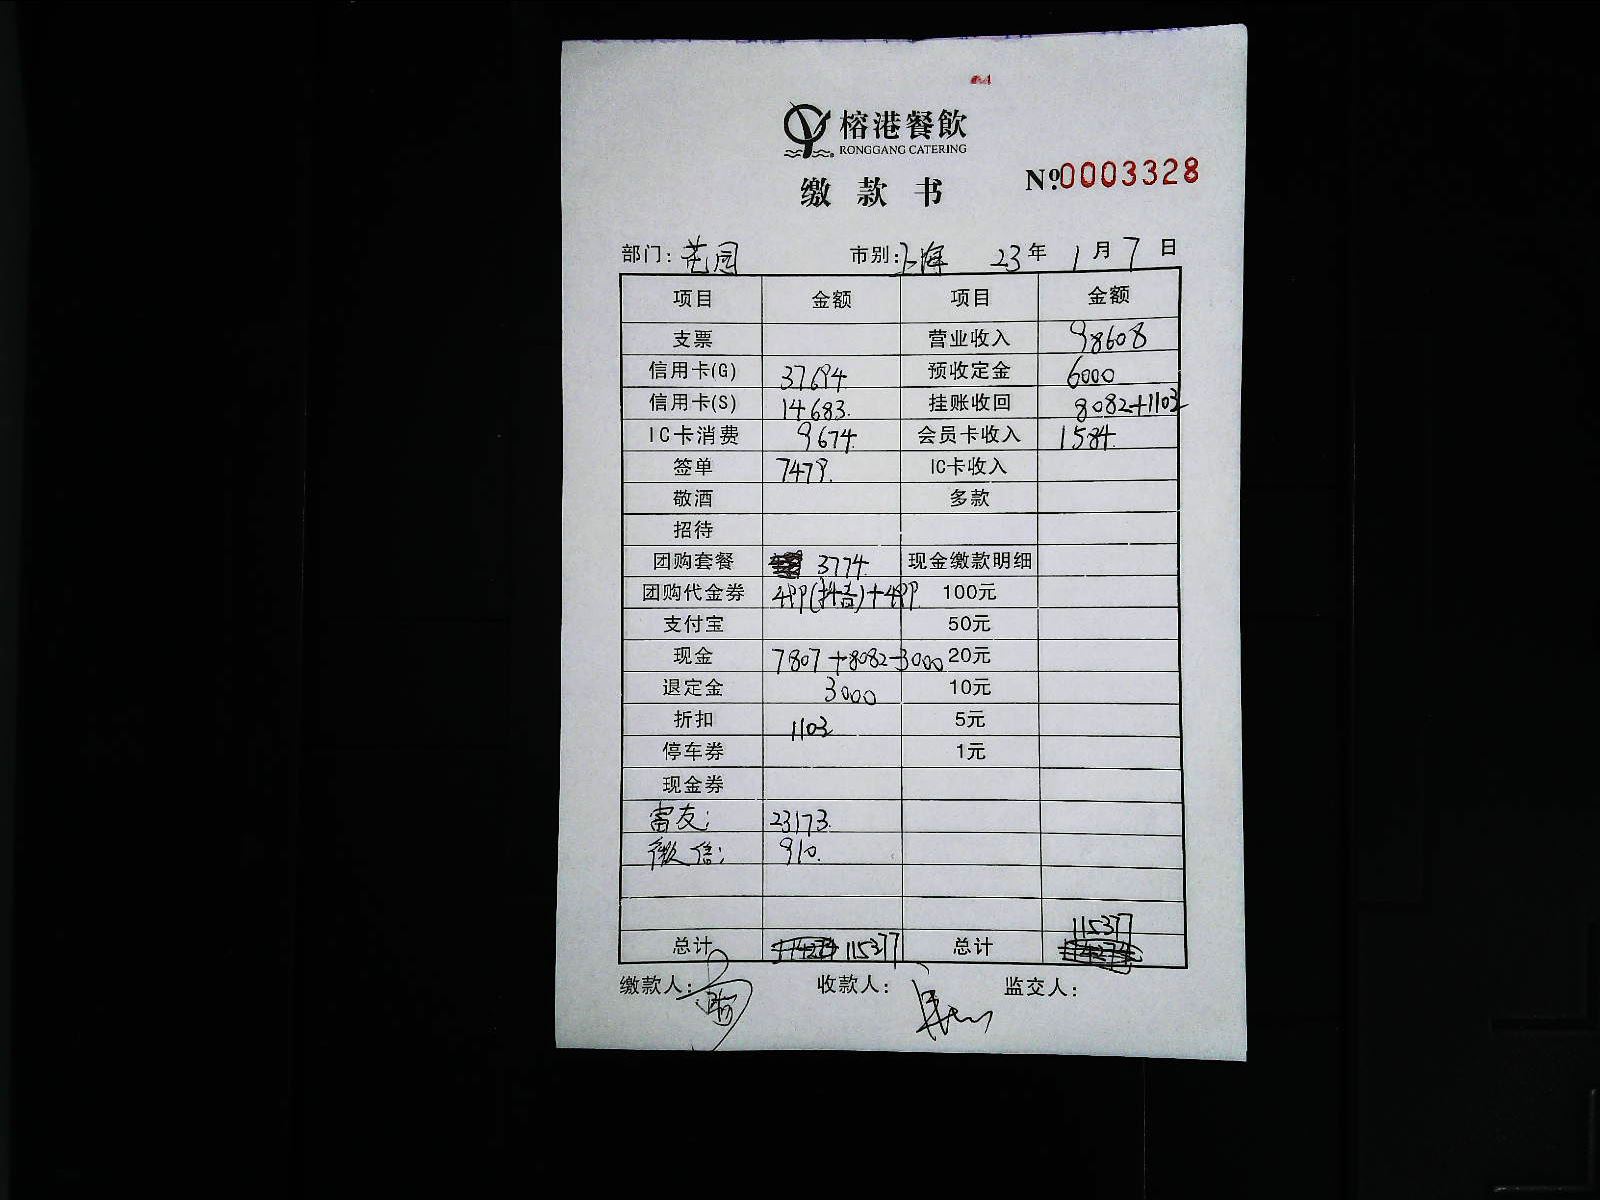 榕港餐飲
RONGGANG CATERING
缴款书 №0003328
部门: 花园 市别: 上海 23年 1月 7日
项目 金额 项目 金额
支票 营业收入 98608
信用卡(G) 37694 预收定金 6000
信用卡(S) 14683. 挂账收回 8082+1103
IC卡消费 9674. 会员卡收入 1584.
签单 7479. IC卡收入
敬酒 多款
招待
团购套餐 3774. 现金缴款明细
团购代金券 499(抖音)+499. 100元
支付宝 50元
现金 7807+8082-3000 20元
退定金 3000 10元
折扣 1103 5元
停车券 1元
现金券
富友: 23173.
微信: 910.
总计 115377 总计 115377
缴款人: 收款人: 监交人: